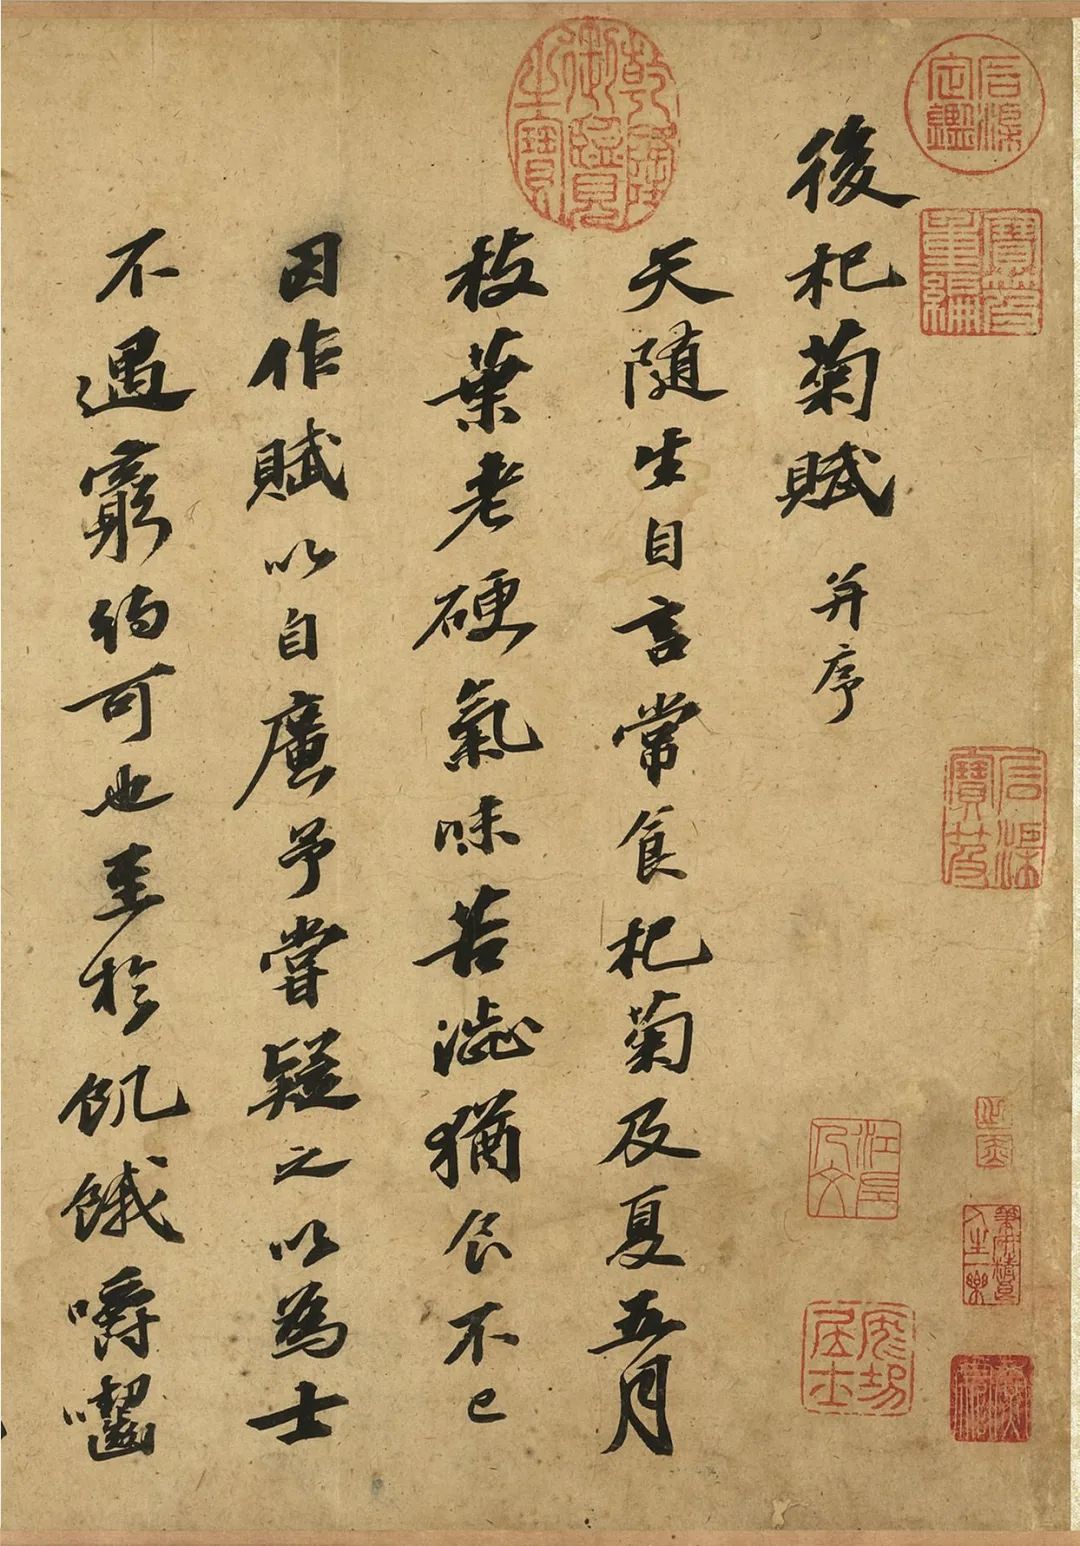 後杞菊賦 并序
天随生自言常食杞菊及夏五月
枝葉老硬氣味苦澁猶食不已
因作賦以自廣予嘗疑之以為士
不遇窮約可也至於飢餓嚼齧
乾隆御覽之寶
石渠定鑑
寶笈重編
石渠寶笈